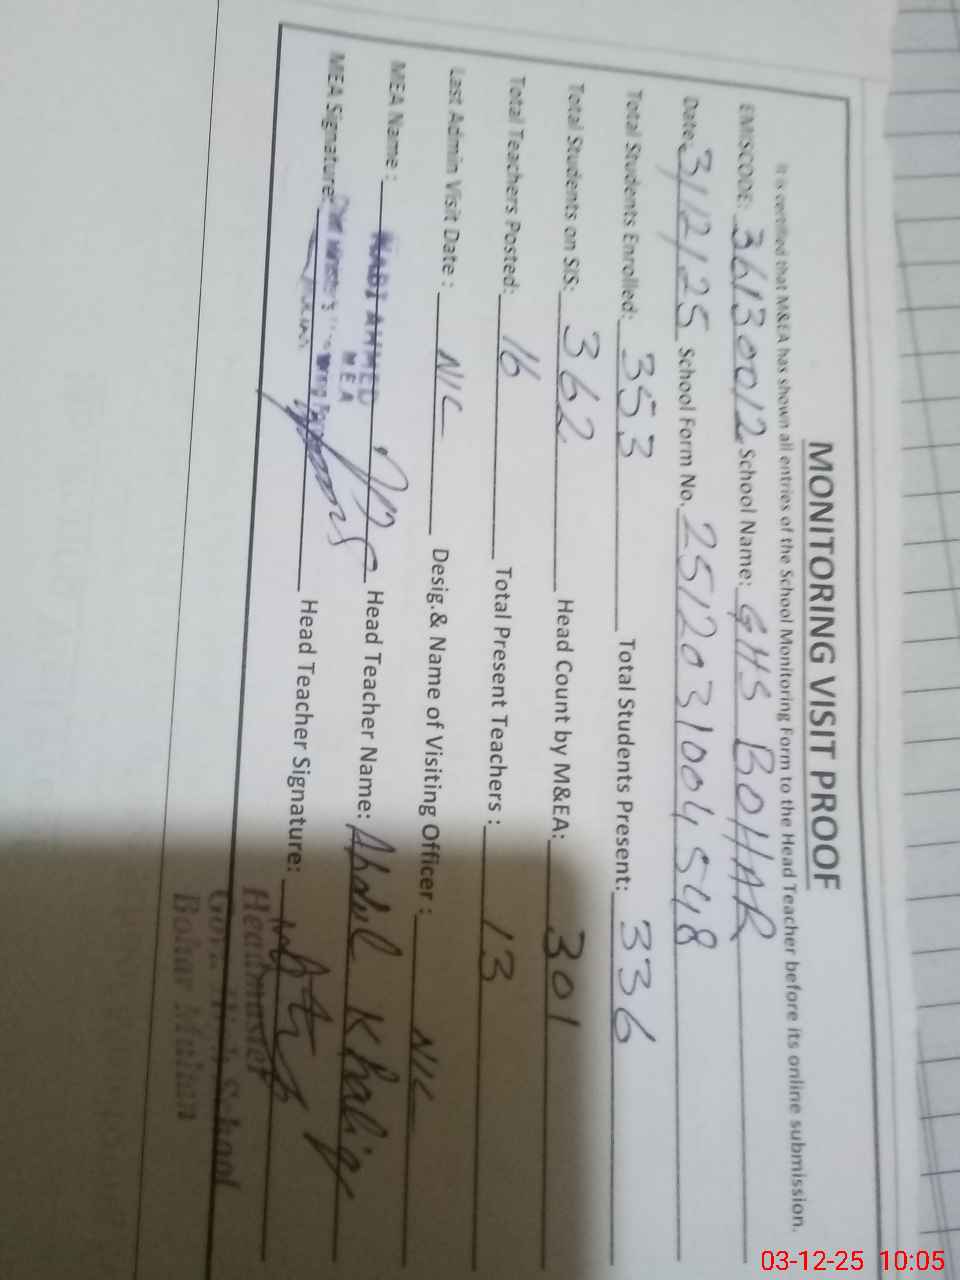 MONITORING VISIT PROOF
It is certified that M&EA has shown all entries of the School Monitoring Form to the Head Teacher before its online submission.
EMISCODE: 36130012 School Name: GHS BOHAR
Date: 3/12/25 School Form No. 2512031004548
Total Students Enrolled: 353 Total Students Present: 336
Total Students on SIS: 362 Head Count by M&EA: 301
Total Teachers Posted: 16 Total Present Teachers: 13
Last Admin Visit Date: NIL Desig.& Name of Visiting Officer: NIL
MEA Name: AHMED Head Teacher Name: Abdul Khaliq
MEA
MEA Signature: Head Teacher Signature:
Headmaster
Govt. High School
Bohar Multan
03-12-25 10:05